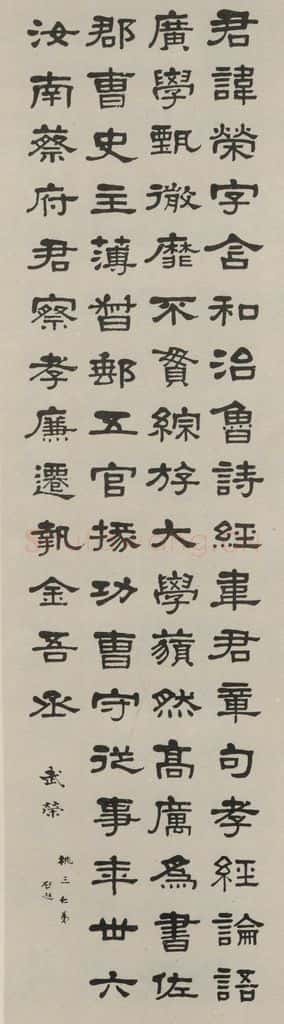 君諱榮字含和治魯詩經韋君章句孝經論語
廣學甄微靡不貫綜斿大學藐然高厲為書佐
郡曹史主薄督郵五官掾功曹守從事年丗六
汝南蔡府君察孝廉遷執金吾丞
武榮
三仁弟